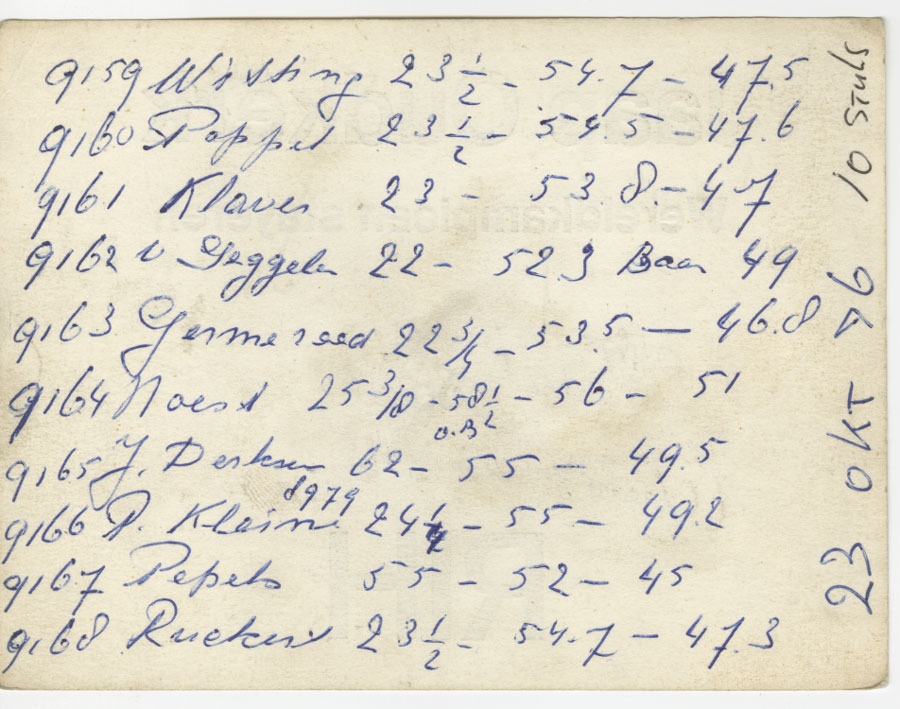 9159 Witting 23 1/2 - 54.7 - 47.5
9160 Poppel 23 1/2 - 54.5 - 47.6
9161 Klaver 23 - 53.8 - 47
9162 v Geggelen 22 - 52.3 Baan 49
9163 Germeraad 22 3/4 - 53.5 - 46.8
9164 Noest 25 3/8 - 58 1/2 - 56 - 51
o.B
9165 J. Derksen 62 - 55 - 49.5
8979
9166 P. Kleine 24 1/4 - 55 - 49.2
9167 Pepels 55 - 52 - 45
9168 Ruckert 23 1/2 - 54.7 - 47.3
23 OKT 76 10 STUKS